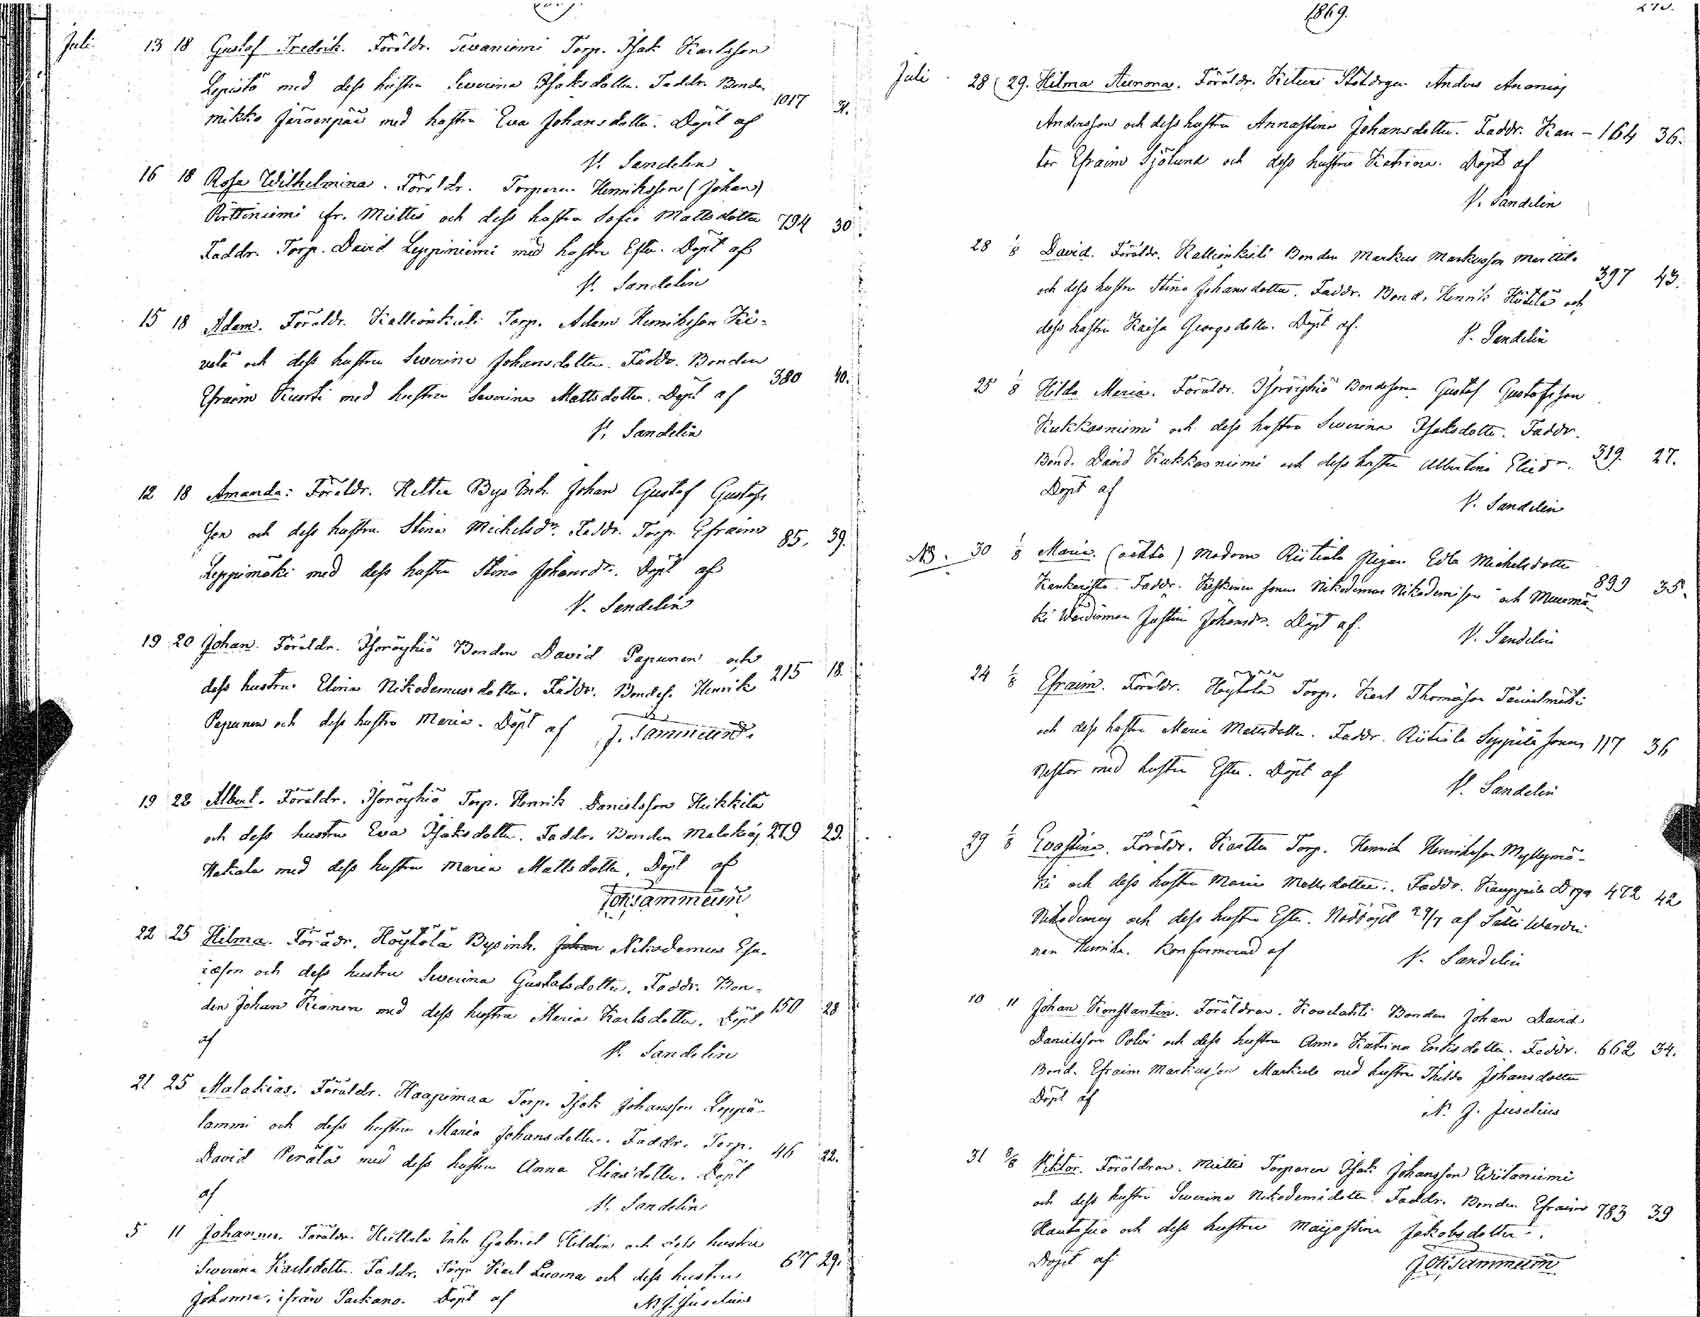 Juli 13 18 Gustaf Fredrik. Föräldr. Torp. Isak Karlsson
Lepistö med dess hustru Severina Isaksdotter. Faddr. Bonden
1017 31.
med hustru Eva Johansdotter. Döpt af
V. Sandelin
16 18 Rosa Wilhelmina. Föräldr. Torparen Henriksson (Johan)
fr. Miettis och dess hustru Sofia Mattsdotter 794 30
Faddr. Torp. David Leppiniemi med hustru Ester. Döpt af
V. Sandelin
15 18 Adam. Föräldr. Torp. Adam Henriksson Ki-
velä och dess hustru Severina Johansdotter. Faddr. Bonden
380 40.
Efraim med hustru Severina Mattsdotter. Döpt af
V. Sandelin
12 18 Amanda: Föräldr. Bys Inh. Johan Gustaf Gustafs
son och dess hustru Stina Michelsdr. Faddr. Torp. Efraim
85. 39.
Leppimäki med dess hustru Stina Johansdr. Döpt af
V. Sandelin
19 20 Johan. Föräldr. Bonden David Papunen och
215 18.
dess hustru Elina Nikodemusdotter. Faddr. Bondes. Henrik
Papunen och dess hustru Maria. Döpt af J. Sammelin
19 22 Albert. Föräldr. Torp. Henrik Danielsson Heikkilä
och dess hustru Eva Isaksdotter. Faddr. Bonden Malakias 279 29.
Hakala med dess hustru Maria Mattsdotter. Döpt af
22 25 Hilma. Förädr. Höytölä Bysinh. Johan Nikodemus Esa-
iasson och dess hustru Severina Gustafsdotter. Faddr. Bon-
den Johan med dess hustru Maria Karlsdotter. Döpt 150 28
af
V. Sandelin
21 25 Malakias. Föräldr. Haapimaa Torp. Isak Johansson Leppä-
lammi och dess hustru Maria Johansdotter. Faddr. Torp.
46 22.
David Perälä med dess hustru Anna Eliasdotter. Döpt
af
V. Sandelin
5 11 Johanna. Föräldr. Inh. Gabriel och dess hustru
67 29.
Severina Karlsdotter. Faddr. Torp. Karl Luoma och dess hustru
Johanna, ifrån Parkano. Döpt af N. J. Juselius
1869.
Juli 28 29. Hilma Aurora. Föräldr. Anders Ananias
Andersson och dess hustru Annastina Johansdotter. Faddr. Kan- 164 36.
tor Efraim Sjölund och dess hustru Katrina. Döpt af
V. Sandelin
28 1/8 David. Föräldr. Bonden Markus Markusson Marttila
397 43.
och dess hustru Stina Johansdotter. Faddr. Bond. Henrik och
dess hustru Kaisa Georgsdotter. Döpt af.
V. Sandelin
25 1/8 Hilda Maria. Föräldr. Bondeson Gustaf Gustafsson
Kukkasniemi och dess hustru Severina Isaksdotter. Faddr.
319. 27.
Bond. David Kukkasniemi och dess hustru Albertina Eliedr.
Döpt af
V. Sandelin
NB. 30 1/8 Maria (oäkta) Modren pigan Eda Michelsdotter
899 35.
Faddr. sonen Nikodemus Nikodemisson och Muurmä-
ki Johansdr. Döpt af.
V. Sandelin
24 1/8 Efraim. Föräldr. Höytölä Torp. Karl Thomasson
och dess hustru Maria Mattsdotter. Faddr. Seppälä sonen 117 36
Nestor med hustru Ester. Döpt af
V. Sandelin
29 1/8 Evastina. Föräldr. Torp. Henrik Henriksson Myllymä-
ki och dess hustru Maria Mattsdotter. Faddr. 472 42
Nikodemus och dess hustru Ester. Nöddöpt 29/7 af
nen Henrika. Konfirmerad af
V. Sandelin
10 11 Johan Konstantin. Föräldrar. Bonden Johan David
Danielsson Polvi och dess hustru Anna Katrina Eriksdotter. Faddr. 662 34.
Bond. Efraim Markusson Markula med hustru Johansdotter
Döpt af
N. J. Juselius
31 2/8 Viktor. Föräldrar. Miettis Torparen Isak Johansson Wiitaniemi
och dess hustru Severina Nikodemidotter. Faddr. Bonden Efraim 783 39
och dess hustru Majastina Jakobsdotter.
Döpt af